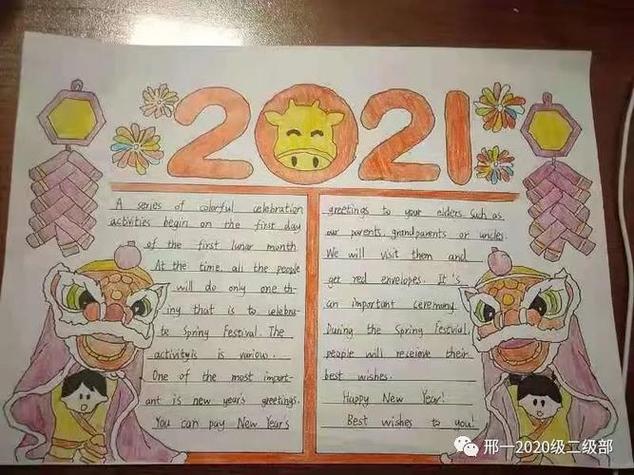 2021
A series of colorful celebration
activities begin on the first day
of the first lunar month
At the time, all the people
will do only one th-
ing that is to celebra-
te Spring Festival. The
activityis is variow.
One of the most import-
ant is new year's greetings.
You can pay New Year's
greetings to your elders such as
our parents, grandparents or uncles.
We will visit them and
get red envelopes. It's
an important ceremony
During the Spring Festvial,
people will receieve their
best wishes.
Happy New Year!
Best wishes to you!
邢一2020级二级部